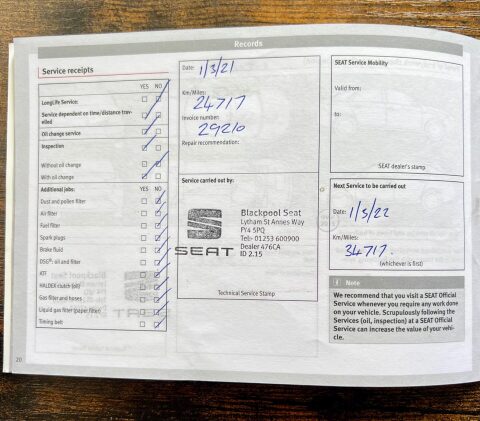 Records
Service receipts
YES NO
LongLife Service:
Service dependent on time/distance trav-
elled
Oil change service
Inspection
Without oil change
With oil change
Additional jobs: YES NO
Dust and pollen filter
Air filter
Fuel filter
Spark plugs
Brake fluid
DSG®: oil and filter
ATF
HALDEX clutch (oil)
Gas filter and hoses
Liquid gas filter (paper filter)
Timing belt
20
Date: 1/3/21
Km/Miles:
24717
Invoice number:
29210
Repair recommendation:
Service carried out by:
SEAT
Blackpool Seat
Lytham St Annes Way
FY4 5PQ
Tel:- 01253 600900
Dealer 476CA
ID 2.15
Technical Service Stamp
SEAT Service Mobility
Valid from:
to:
SEAT dealer's stamp
Next Service to be carried out
Date: 1/3/22
Km/Miles:
34717.
(whichever is first)
i Note
We recommend that you visit a SEAT Official
Service whenever you require any work done
on your vehicle. Scrupulously following the
Services (oil, inspection) at a SEAT Official
Service can increase the value of your vehi-
cle.